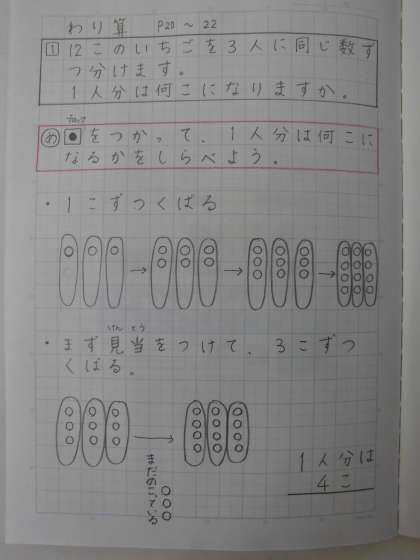 わり算 P20～22
1 12このいちごを3人に同じ数ず
つ分けます。
1人分は何こになりますか。
ブロック
わ ●をつかって、1人分は何こに
なるかをしらべよう。
・1こずつくばる
けん とう
・まず見当をつけて、3こずつ
くばる。
まだのこっている
1人分は
4こ